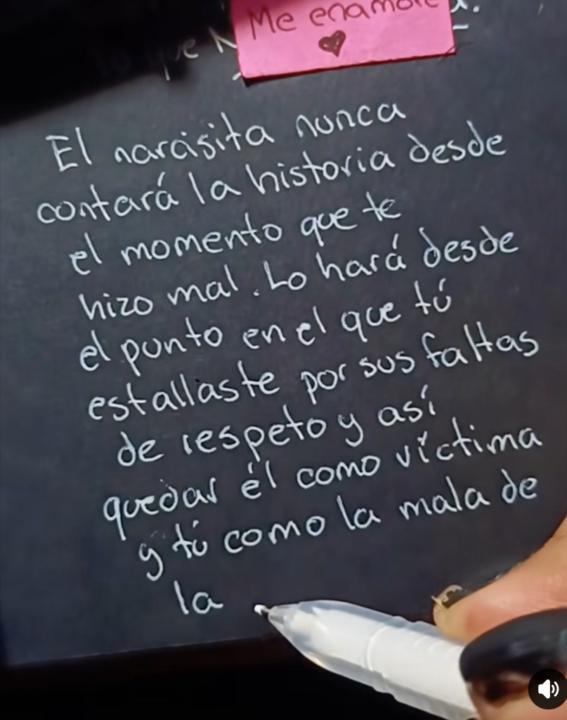 Me enamoré
El narcisita nunca
contará la historia desde
el momento que te
hizo mal. Lo hará desde
el punto en el que tú
estallaste por sus faltas
de respeto y así
quedar él como víctima
y tú como la mala de
la